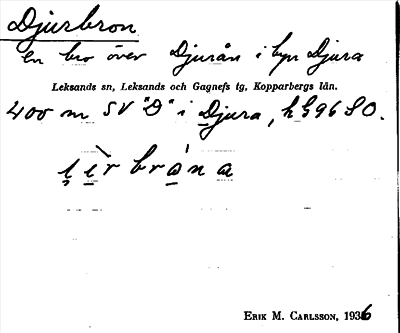 Djurbron
en bro över Djurån i byn Djura
Leksands sn, Leksands och Gagnefs tg, Kopparbergs län.
400 m SV "D" i Djura, h G96 SO.
brǻna
ERIK M. CARLSSON, 1936